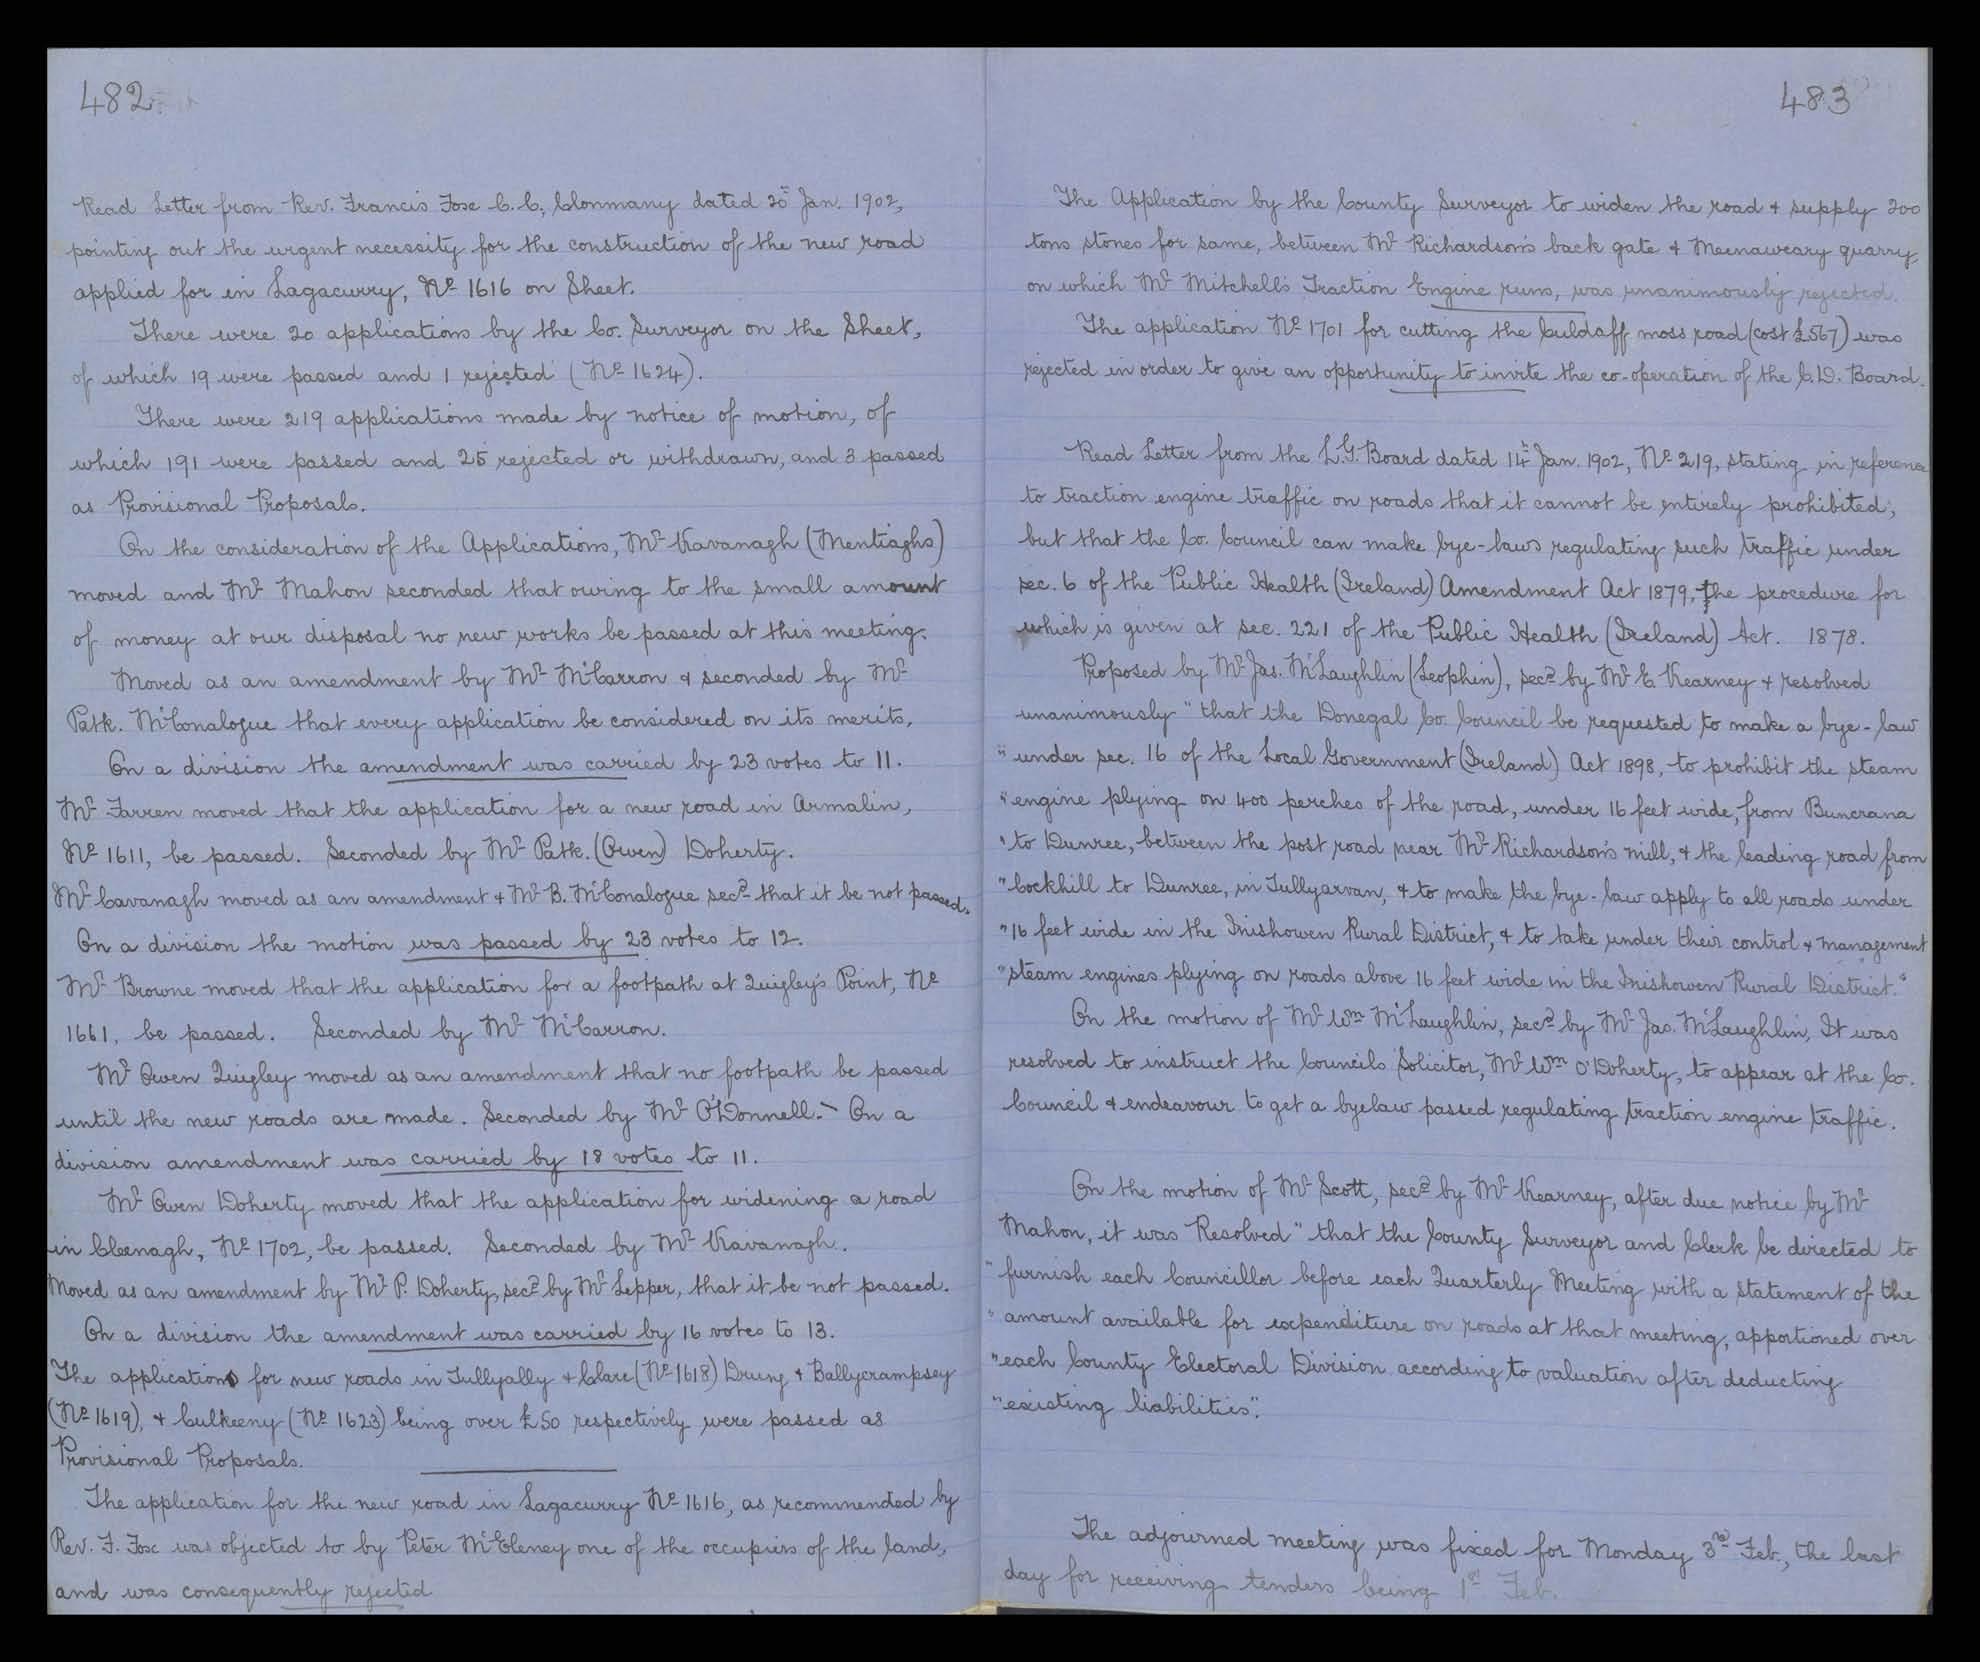 482.
Read Letter from Rev. Francis Fox C.C., Clonmany dated 20th Jan. 1902,
pointing out the urgent necessity for the construction of the new road
applied for in Lagacurry, No 1616 on Sheet.
There were 20 applications by the Co. Surveyor on the Sheet,
of which 19 were passed and 1 rejected (No 1624).
There were 219 applications made by notice of motion, of
which 191 were passed and 25 rejected or withdrawn, and 3 passed
as Provisional Proposals.
On the consideration of the Applications, Mr Kavanagh (Mentiaghs)
moved and Mr Mahon seconded that owing to the small amount
of money at our disposal no new works be passed at this meeting.
Moved as an amendment by Mr McCarron & seconded by Mr
Patk. McConalogue that every application be considered on its merits,
On a division the amendment was carried by 23 votes to 11.
Mr Farren moved that the application for a new road in Armalin,
No 1611, be passed. Seconded by Mr Patk. (Owen) Doherty.
Mr Cavanagh moved as an amendment & Mr B. McConalogue secd that it be not passed.
On a division the motion was passed by 23 votes to 12.
Mr Browne moved that the application for a footpath at Quigley's Point, No
1661, be passed. Seconded by Mr McCarron.
Mr Owen Quigley moved as an amendment that no footpath be passed
until the new roads are made. Seconded by Mr O'Donnell. - On a
division amendment was carried by 18 votes to 11.
Mr Owen Doherty moved that the application for widening a road
in Cleenagh, No 1702, be passed. Seconded by Mr Kavanagh.
Moved as an amendment by Mr P. Doherty, secd by Mr Lepper, that it be not passed.
On a division the amendment was carried by 16 votes to 13.
The applications for new roads in Tullyally & Clare (No 1618) Drung & Ballycrampsey
(No 1619), & Culkeeny (No 1623) being over £50 respectively were passed as
Provisional Proposals.
The application for the new road in Lagacurry No 1616, as recommended by
Rev. F. Fox was objected to by Peter McEleney one of the occupiers of the land,
and was consequently rejected
483
The Application by the County Surveyor to widen the road & supply 200
tons stones for same, between Mr Richardson's back gate & Meenaweary quarry,
on which Mr Mitchell's Traction Engine runs, was unanimously rejected.
The application No 1701 for cutting the Culdaff moss road (cost £567) was
rejected in order to give an opportunity to invite the co-operation of the C.D. Board.
Read Letter from the L.G. Board dated 14th Jan. 1902, No 219, stating in reference
to traction engine traffic on roads that it cannot be entirely prohibited,
but that the Co. Council can make bye-laws regulating such traffic under
sec. 6 of the Public Health (Ireland) Amendment Act 1879, the procedure for
which is given at sec. 221 of the Public Health (Ireland) Act. 1878.
Proposed by Mr Jas. McLaughlin (Leophin), secd by Mr E Kearney & resolved
unanimously "that the Donegal Co. Council be requested to make a bye-law
"under sec. 16 of the Local Government (Ireland) Act 1898, to prohibit the steam
"engine plying on 400 perches of the road, under 16 feet wide, from Buncrana
"to Dunree, between the post road near Mr Richardson's mill, & the leading road from
"Cockhill to Dunree, in Tullyarvan, & to make the bye-law apply to all roads under
"16 feet wide in the Inishowen Rural District, & to take under their control & management
"steam engines plying on roads above 16 feet wide in the Inishowen Rural District."
On the motion of Mr Wm McLaughlin, secd by Mr Jas. McLaughlin, It was
resolved to instruct the Councils Solicitor, Mr Wm O'Doherty, to appear at the Co.
Council & endeavour to get a byelaw passed regulating traction engine traffic.
On the motion of Mr Scott, secd by Mr Kearney, after due notice by Mr
Mahon, it was Resolved "that the County Surveyor and Clerk be directed to
"furnish each Councillor before each Quarterly Meeting with a statement of the
"amount available for expenditure on roads at that meeting, apportioned over
"each County Electoral Division according to valuation after deducting
"existing liabilities".
The adjourned meeting was fixed for Monday 3rd Feb., the last
day for receiving tenders being 1st Feb.